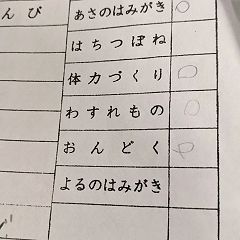 んび
あさのはみがき ○
はちつぼね
体力づくり ○
わすれもの ○
おんどく ○
よるのはみがき